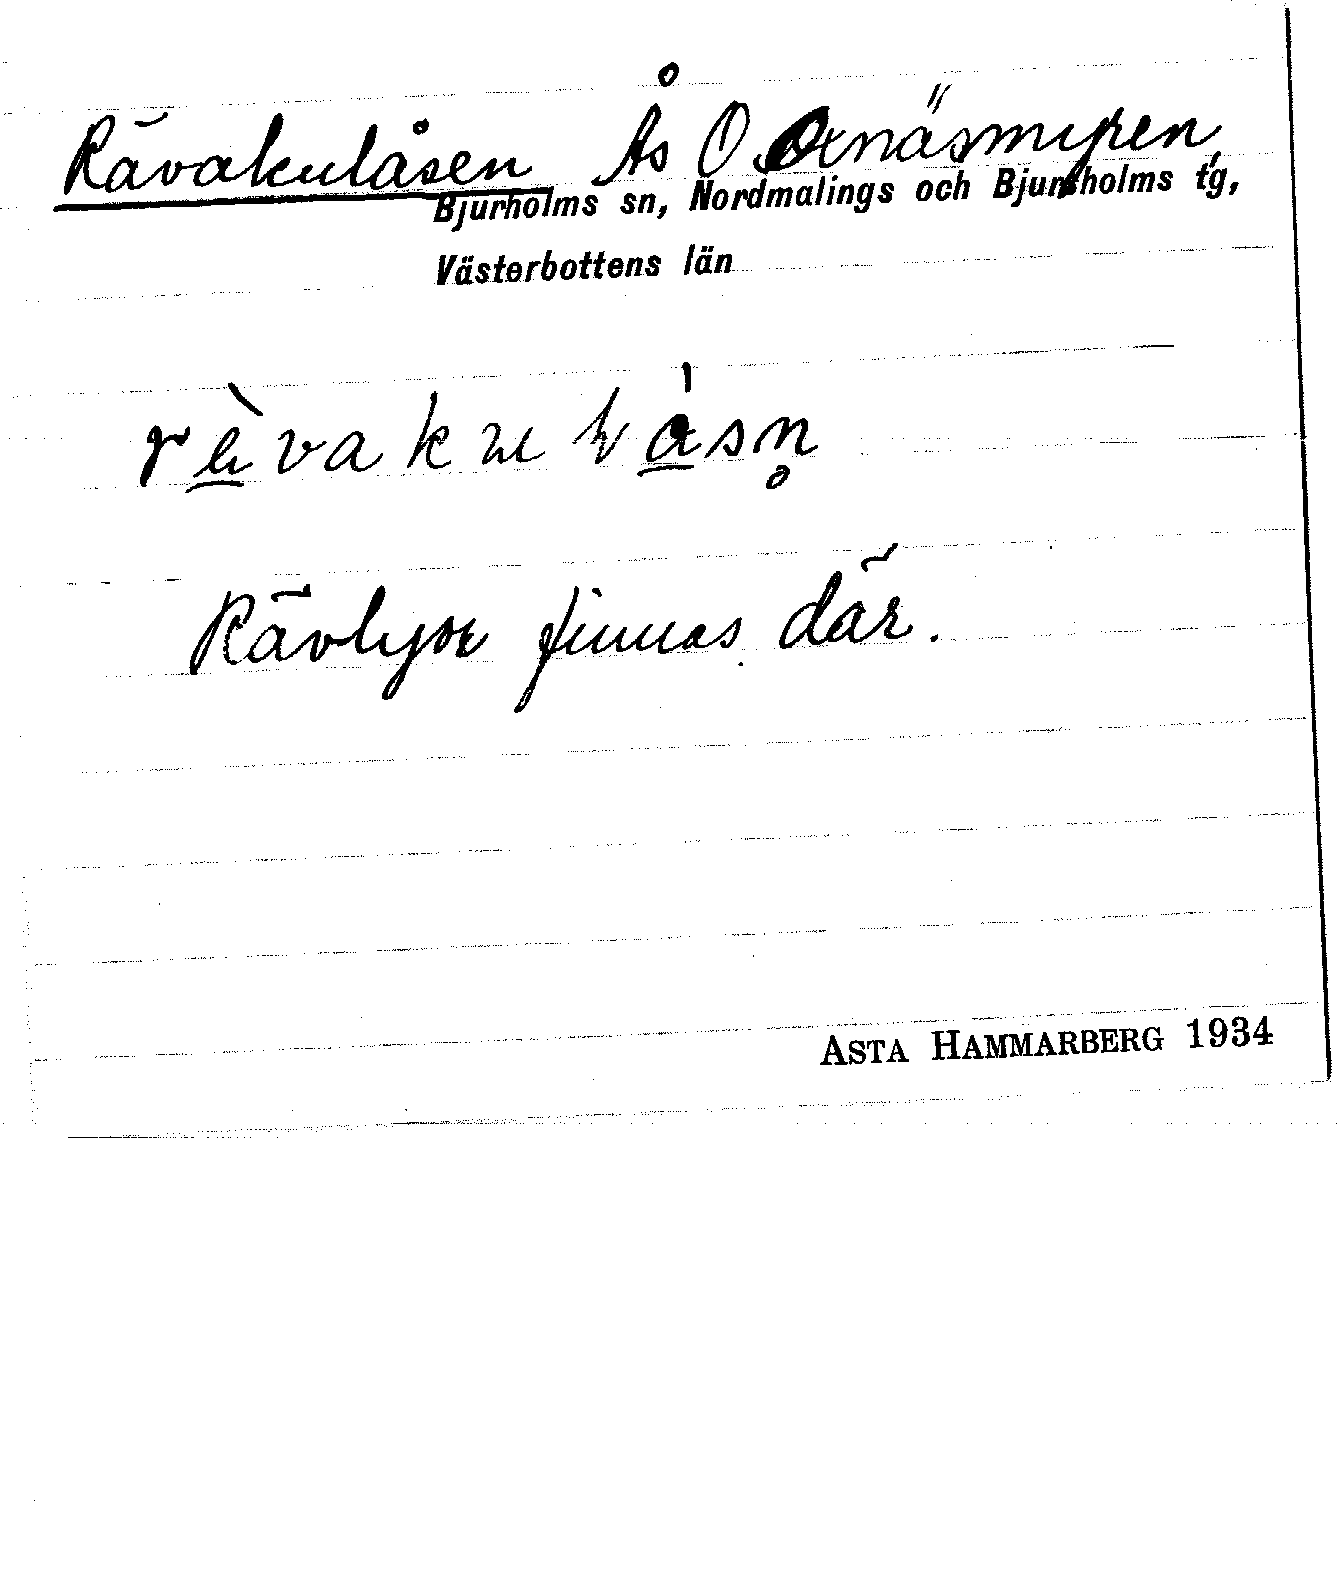 Rävakulåsen Ås O Ornäsmyren,
Bjurholms sn, Nordmalings och Bjurholms tg,
Västerbottens län
Rävlyor finnas där.
ASTA HAMMARBERG 1934